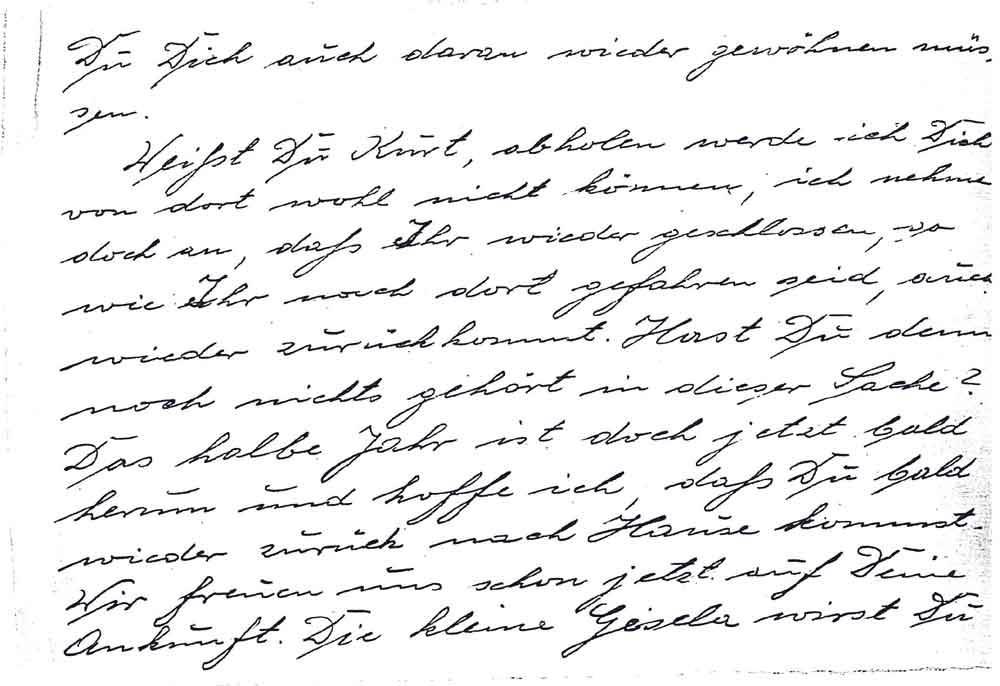 Du Dich auch daran wieder gewöhnen müs,
sen.
Weißt Du Kurt, abholen werde ich Dich
von dort wohl nicht können, ich nehme
doch an, daß Ihr wieder geschlossen, so
wie Ihr nach dort gefahren seid, auch
wieder zurückkommt. Hast Du denn
noch nichts gehört in dieser Sache?
Das halbe Jahr ist doch jetzt bald
herum und hoffe ich, daß Du bald
wieder zurück nach Hause kommst.
Wir freuen uns schon jetzt auf Deine
Ankunft. Die kleine Gisela wirst Du